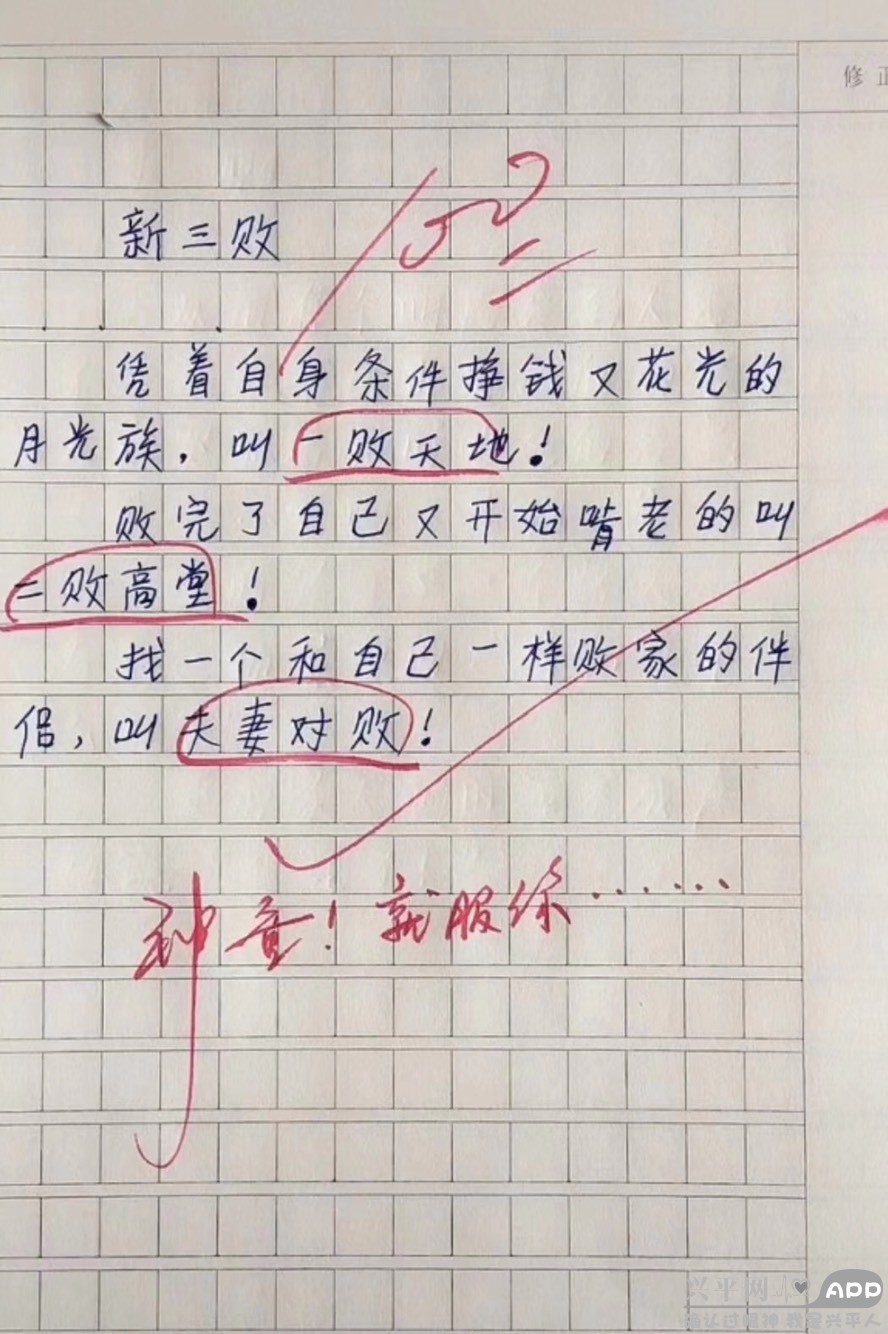 修正
新三败
凭着自身条件挣钱又花光的
月光族，叫一败天地！
败完了自己又开始啃老的叫
二败高堂！
找一个和自己一样败家的伴
侣，叫夫妻对败！
神童！就服你……
兴平网
APP
确认过眼神 我是兴平人